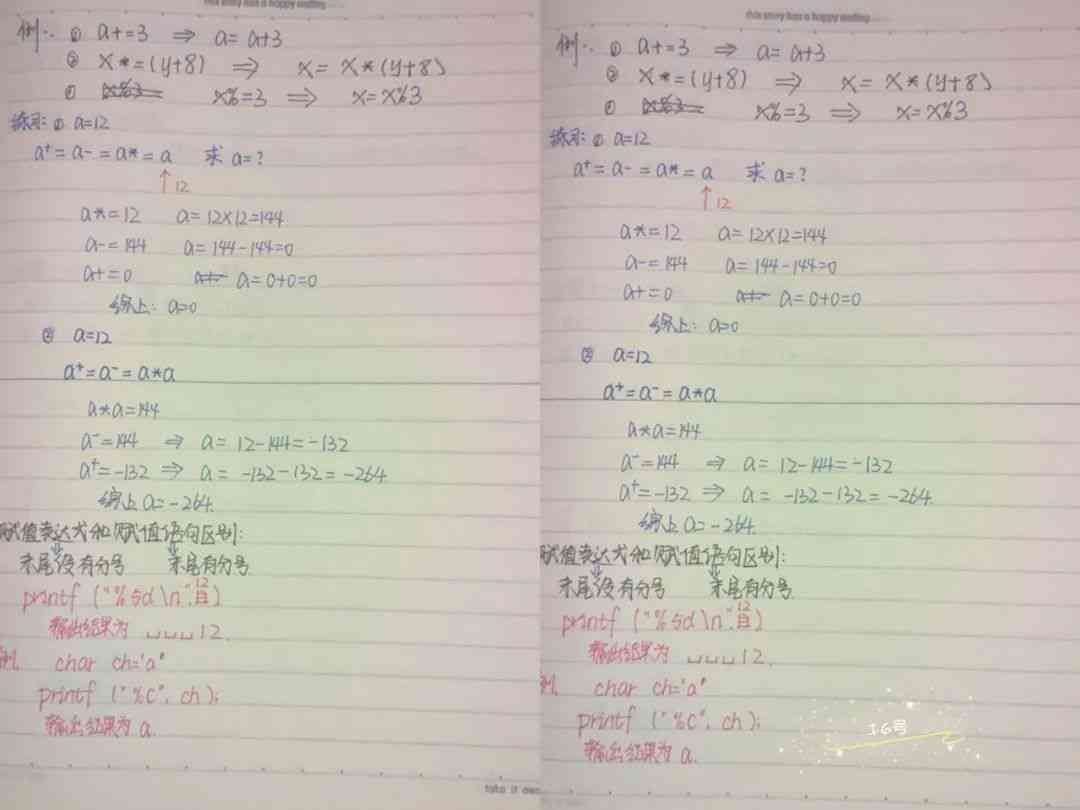 this story has a happy ending
例: ① a+=3 ⇒ a=a+3
② x*=(y+8) ⇒ x=x*(y+8)
① x%=3 ⇒ x=x%3
练习: ① a=12
a+=a-=a*=a 求a=?
↑12
a*=12 a=12×12=144
a-=144 a=144-144=0
a+=0 a=0+0=0
综上: a=0
② a=12
a+=a-=a*a
a*a=144
a-=144 ⇒ a=12-144=-132
a+=-132 ⇒ a=-132-132=-264
综上a=-264.
赋值表达式和赋值语句区别:
末尾没有分号 末尾有分号
printf ("%5d\n",12)
输出结果为 ␣␣␣12.
例. char ch='a"
printf ("%c", ch);
输出结果为 a.
take it
this story has a happy ending
例: ① a+=3 ⇒ a=a+3
② x*=(y+8) ⇒ x=x*(y+8)
① x%=3 ⇒ x=x%3
练习: ① a=12
a+=a-=a*=a 求a=?
↑12
a*=12 a=12×12=144
a-=144 a=144-144=0
a+=0 a=0+0=0
综上: a=0
② a=12
a+=a-=a*a
a*a=144
a-=144 ⇒ a=12-144=-132
a+=-132 ⇒ a=-132-132=-264.
综上a=-264.
赋值表达式和赋值语句区别:
末尾没有分号 末尾有分号
printf ("%5d\n",12)
输出结果为 ␣␣␣12.
例. char ch='a"
printf ("%c", ch);
输出结果为 a.
16号